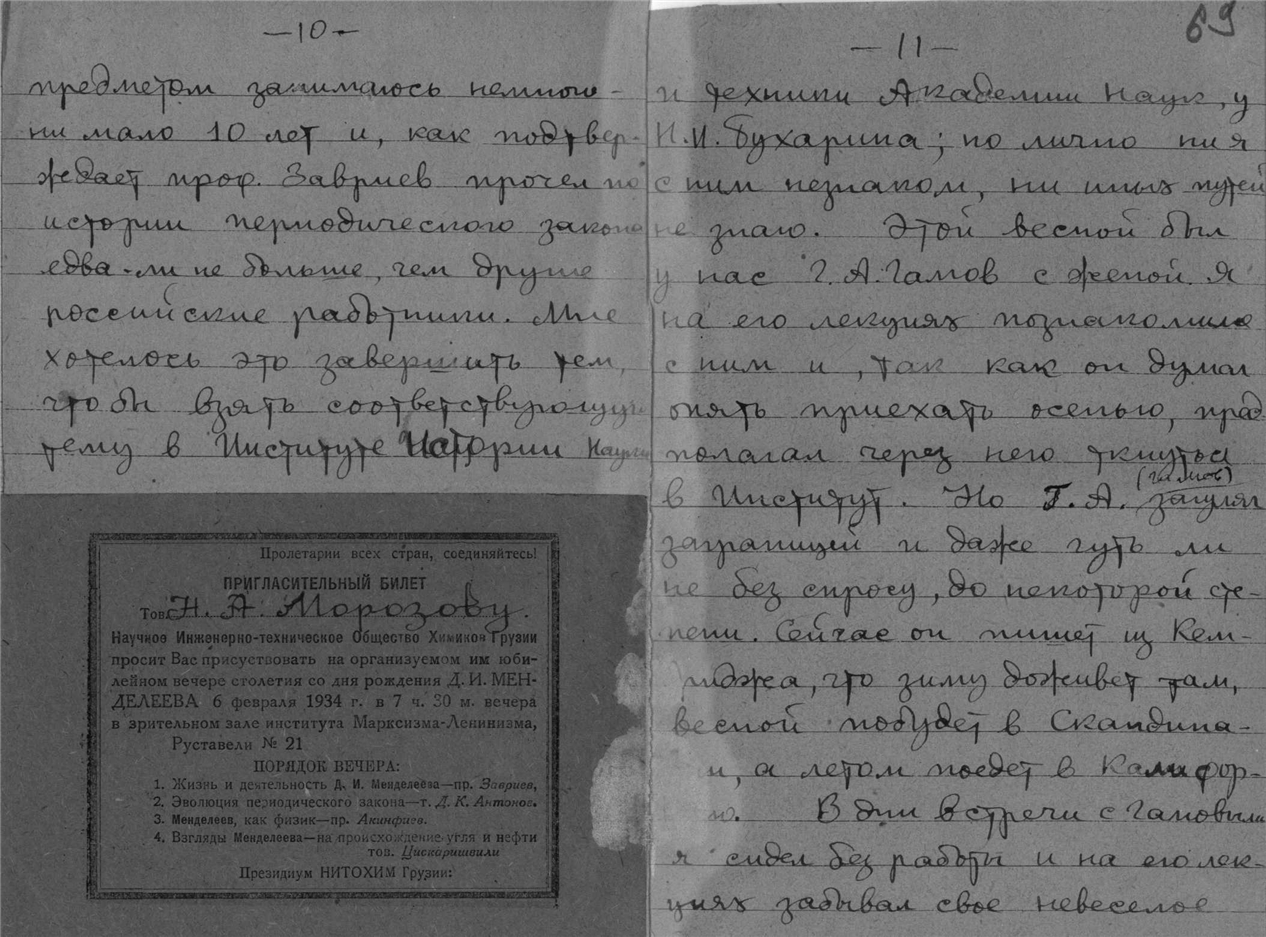 —10—
предметом занимаюсь немного-
ни мало 10 лет и, как подтвер-
ждает проф. Завриев прочел по
истории периодического закона
едва-ли не больше, чем другие
российские работники. Мне
хотелось это завершить тем,
чтобы взять соответствующую
тему в Институте Истории Науки
Пролетарии всех стран, соединяйтесь!
ПРИГЛАСИТЕЛЬНЫЙ БИЛЕТ
Тов. Н. А. Морозову.
Научное Инженерно-техническое Общество Химиков Грузии
просит Вас присуствовать на организуемом им юби-
лейном вечере столетия со дня рождения Д. И. МЕН-
ДЕЛЕЕВА 6 февраля 1934 г. в 7 ч. 30 м. вечера
в зрительном зале института Марксизма-Ленинизма,
Руставели № 21
ПОРЯДОК ВЕЧЕРА:
1. Жизнь и деятельность Д. И. Менделеева—пр. Завриев,
2. Эволюция периодического закона—т. Д. К. Антонов.
3. Менделеев, как физик—пр. Акинфиев.
4. Взгляды Менделеева—на происхождение угля и нефти
тов. Цискаришвили
Президиум НИТОХИМ Грузии:
69
—11—
и техники Академии Наук, у
Н.И. Бухарина; но лично ни я
с ним незнаком, ни иных путей
не знаю. Этой весной был
у нас Г. А. Гамов с женой. Я
на его лекциях познакомился
с ним и, так как он думал
опять приехать осенью, пред
полагал через него ткнуться
в Институт. Но Г. А. (Гамов) загулял
заграницей и даже чуть ли
не без спросу, до некоторой сте-
пени. Сейчас он пишет из Кем-
риджа, что зиму доживет там,
весной побудет в Скандина-
и, а летом поедет в Калифор-
ю. В дни встречи с Гамовым
я сидел без работы и на его лек-
циях забывал свое невеселое